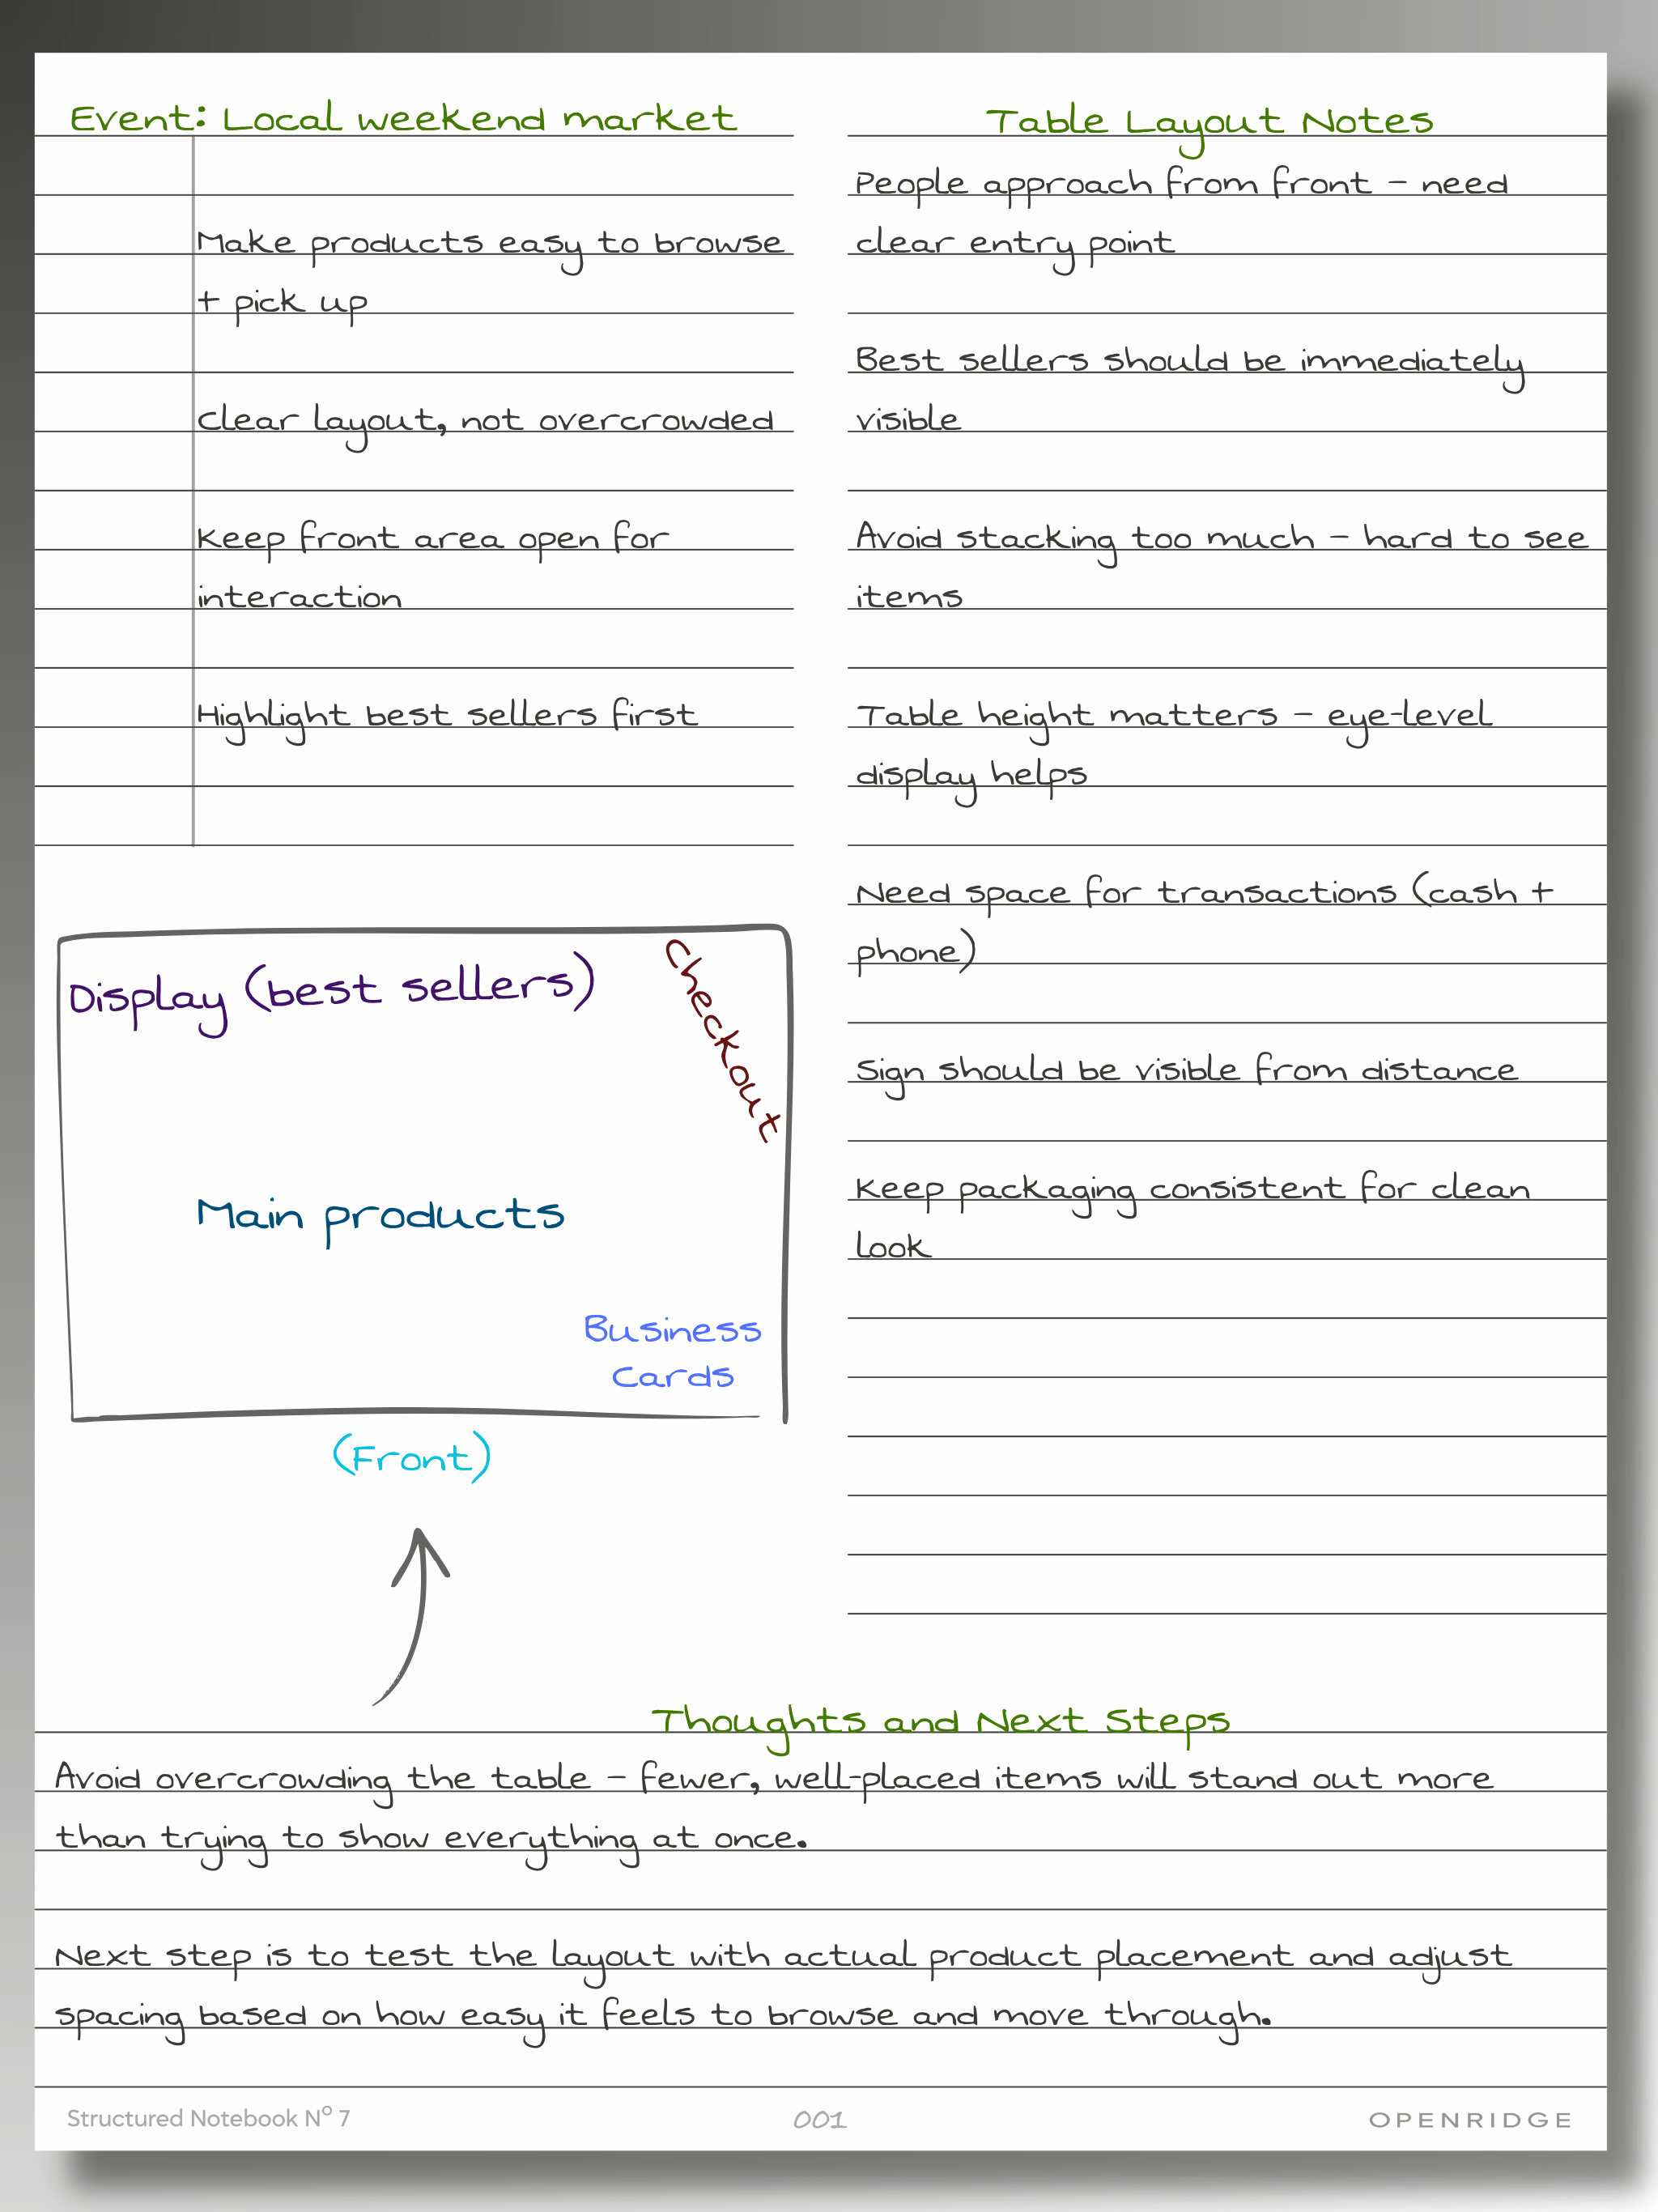 Event: Local weekend market
Make products easy to browse
+ pick up
Clear layout, not overcrowded
Keep front area open for
interaction
Highlight best sellers first
Table Layout Notes
People approach from front – need
clear entry point
Best sellers should be immediately
visible
Avoid stacking too much – hard to see
items
Table height matters – eye-level
display helps
Need space for transactions (cash +
phone)
Sign should be visible from distance
Keep packaging consistent for clean
look
Display (best sellers)
Checkout
Main products
Business
Cards
(Front)
Thoughts and Next Steps
Avoid overcrowding the table – fewer, well-placed items will stand out more
than trying to show everything at once.
Next step is to test the layout with actual product placement and adjust
spacing based on how easy it feels to browse and move through.
Structured Notebook Nº 7
001
OPENRIDGE